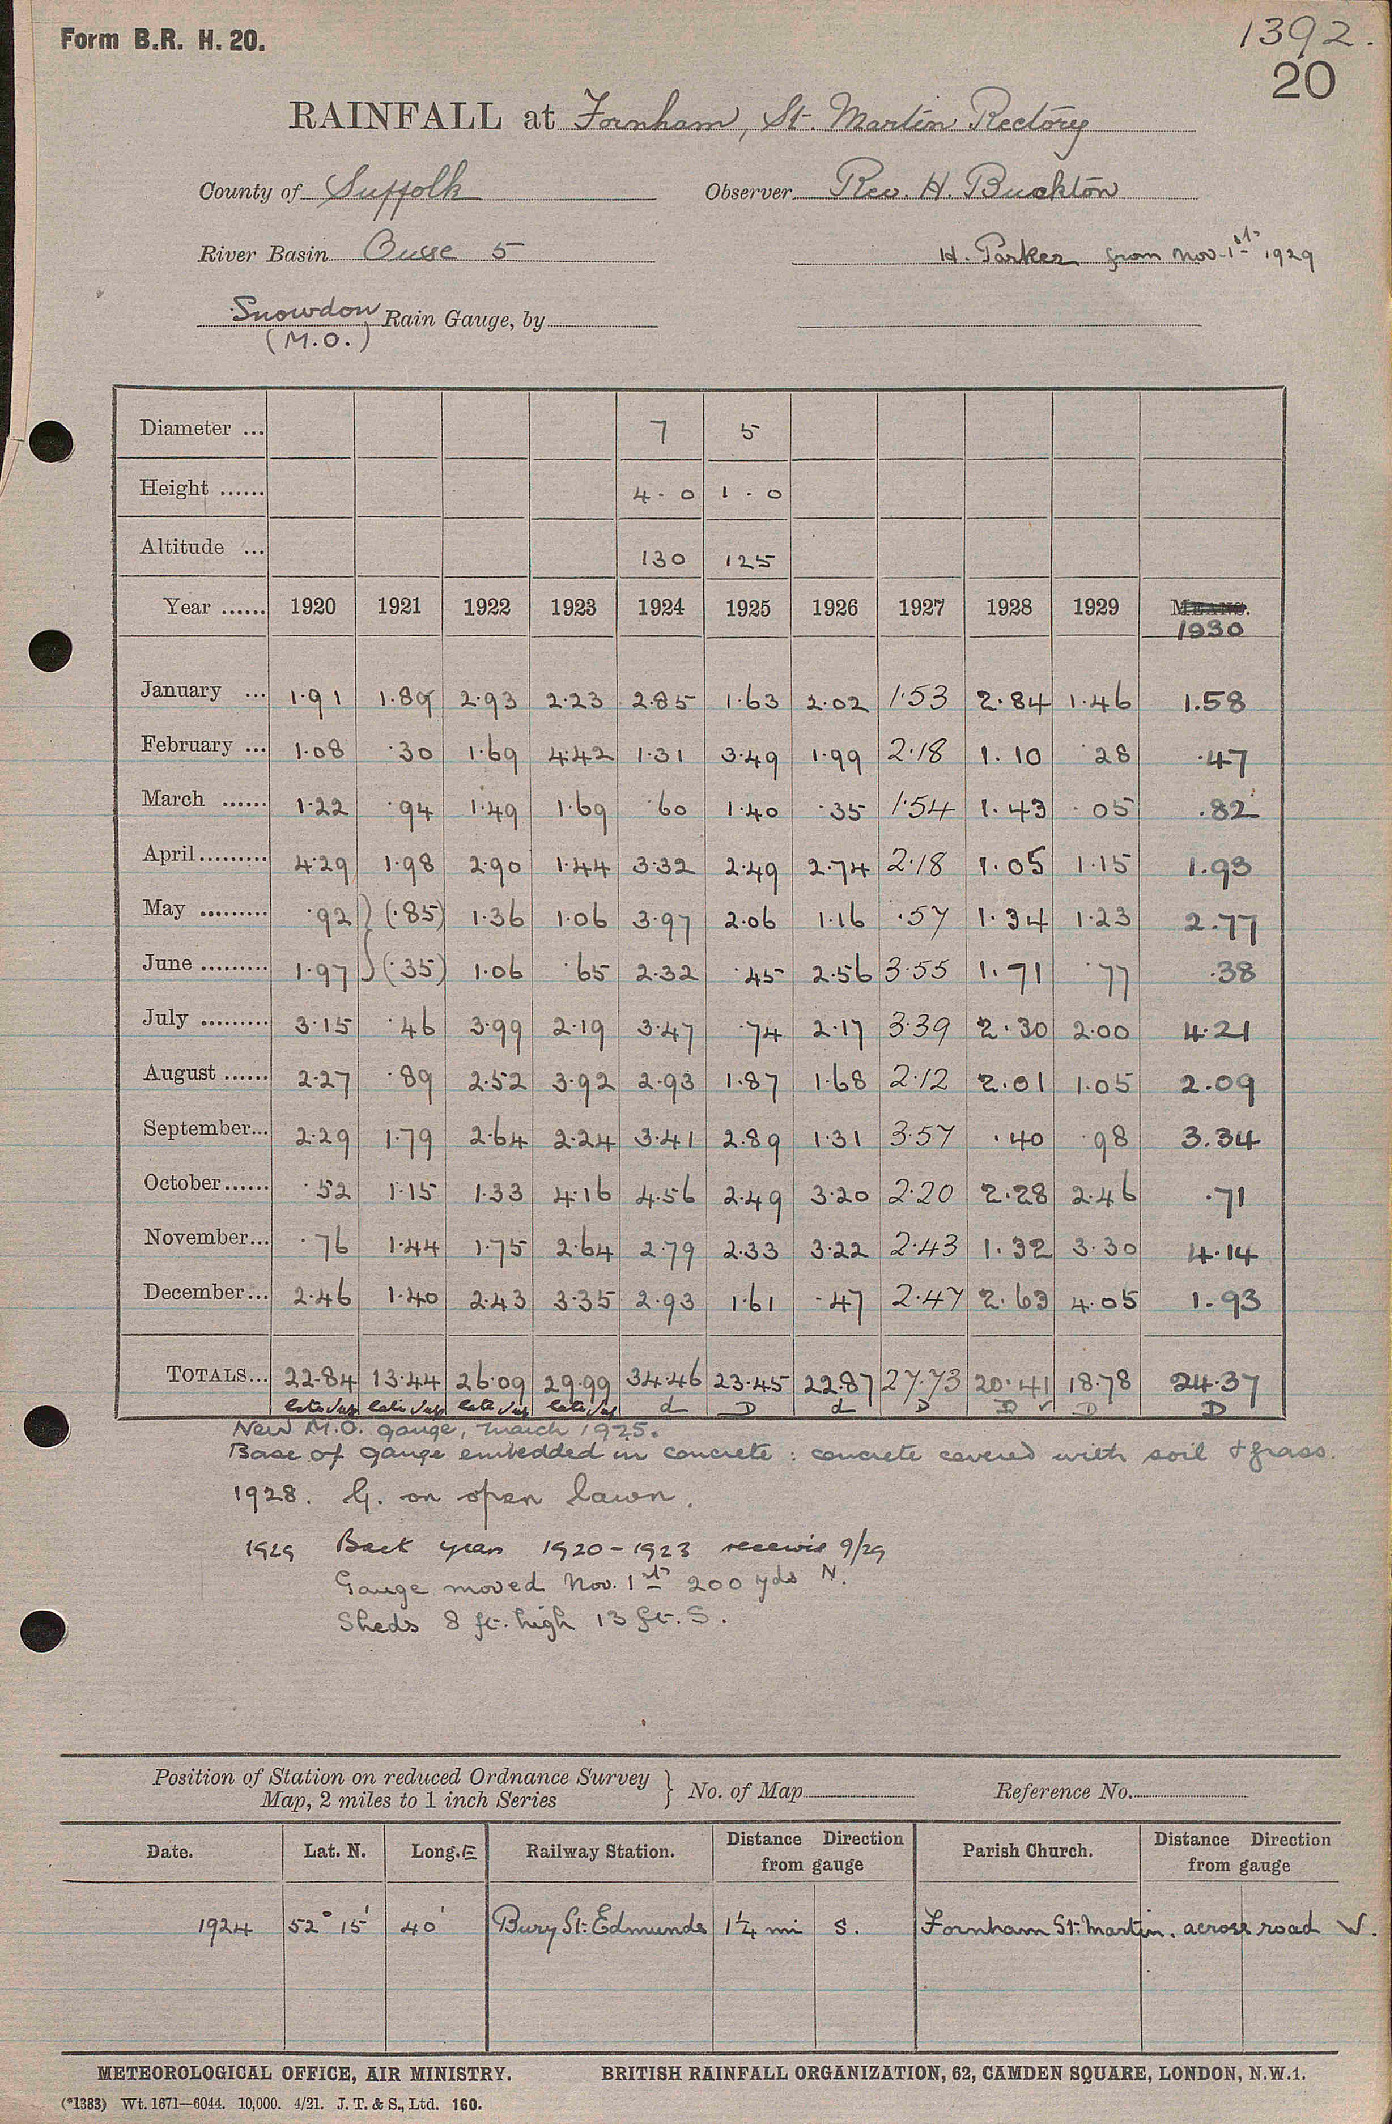 Form B.R. H. 20.
1392.
20
RAINFALL at Fornham, St. Martin Rectory
County of Suffolk Observer Rev. H. Buckton
River Basin Ouse 5 H. Parker from Nov. 1st 1929
Snowdon Rain Gauge, by
(M.O.)
Diameter ... 7 5
Height ...... 4 - 0 1 - 0
Altitude ... 130 125
Year ...... 1920 1921 1922 1923 1924 1925 1926 1927 1928 1929 MEANS.
1930
January ... 1·91 1·89 2·93 2·23 2·85 1·63 2·02 1·53 2·84 1·46 1.58
February ... 1·08 ·30 1·69 4·42 1·31 3·49 1·99 2·18 1.10 ·28 ·47
March ...... 1·22 ·94 1·49 1·69 ·60 1·40 ·35 1·54 1.43 ·05 .82
April ......... 4·29 1·98 2·90 1·44 3·32 2·49 2·74 2·18 1.05 1·15 1.93
May ......... ·92 } (·85) 1·36 1·06 3·97 2·06 1·16 ·57 1.34 1·23 2.77
June ......... 1·97 } (·35) 1·06 ·65 2·32 ·45 2·56 3·55 1.71 ·77 .38
July ......... 3·15 ·46 3·99 2·19 3·47 ·74 2·17 3·39 2.30 2·00 4.21
August ...... 2·27 ·89 2·52 3·92 2·93 1·87 1·68 2·12 2.01 1·05 2.09
September... 2·29 1·79 2·64 2·24 3·41 2·89 1·31 3·57 ·40 ·98 3.34
October ...... ·52 1·15 1·33 4·16 4·56 2·49 3·20 2·20 2.28 2·46 .71
November... ·76 1·44 1·75 2·64 2·79 2·33 3·22 2·43 1.32 3·30 4.14
December ... 2·46 1·40 2·43 3·35 2·93 1·61 ·47 2·47 2.63 4·05 1.93
TOTALS... 22·84 13·44 26·09 29·99 34·46 23·45 22·87 27·73 20·41 18·78 24.37
d D d D D ✓ D D
New M.O. gauge, March 1925.
Base of gauge embedded in concrete : concrete covered with soil & grass.
1928. G. on open lawn.
1929 Back years 1920-1923 9/29
Gauge moved Nov. 1st 200 yds N.
Sheds 8 ft. high 13 ft. S.
Position of Station on reduced Ordnance Survey
Map, 2 miles to 1 inch Series } No. of Map Reference No.
Date. Lat. N. Long. E Railway Station. Distance Direction from gauge Parish Church. Distance Direction from gauge
1924 52° 15' 40' Bury St. Edmunds 1¼ mi S. Fornham St. Martin. across road W.
METEOROLOGICAL OFFICE, AIR MINISTRY. BRITISH RAINFALL ORGANIZATION, 62, CAMDEN SQUARE, LONDON, N.W.1.
(*1383) Wt. 1671—6044. 10,000. 4/21. J. T. & S., Ltd. 160.